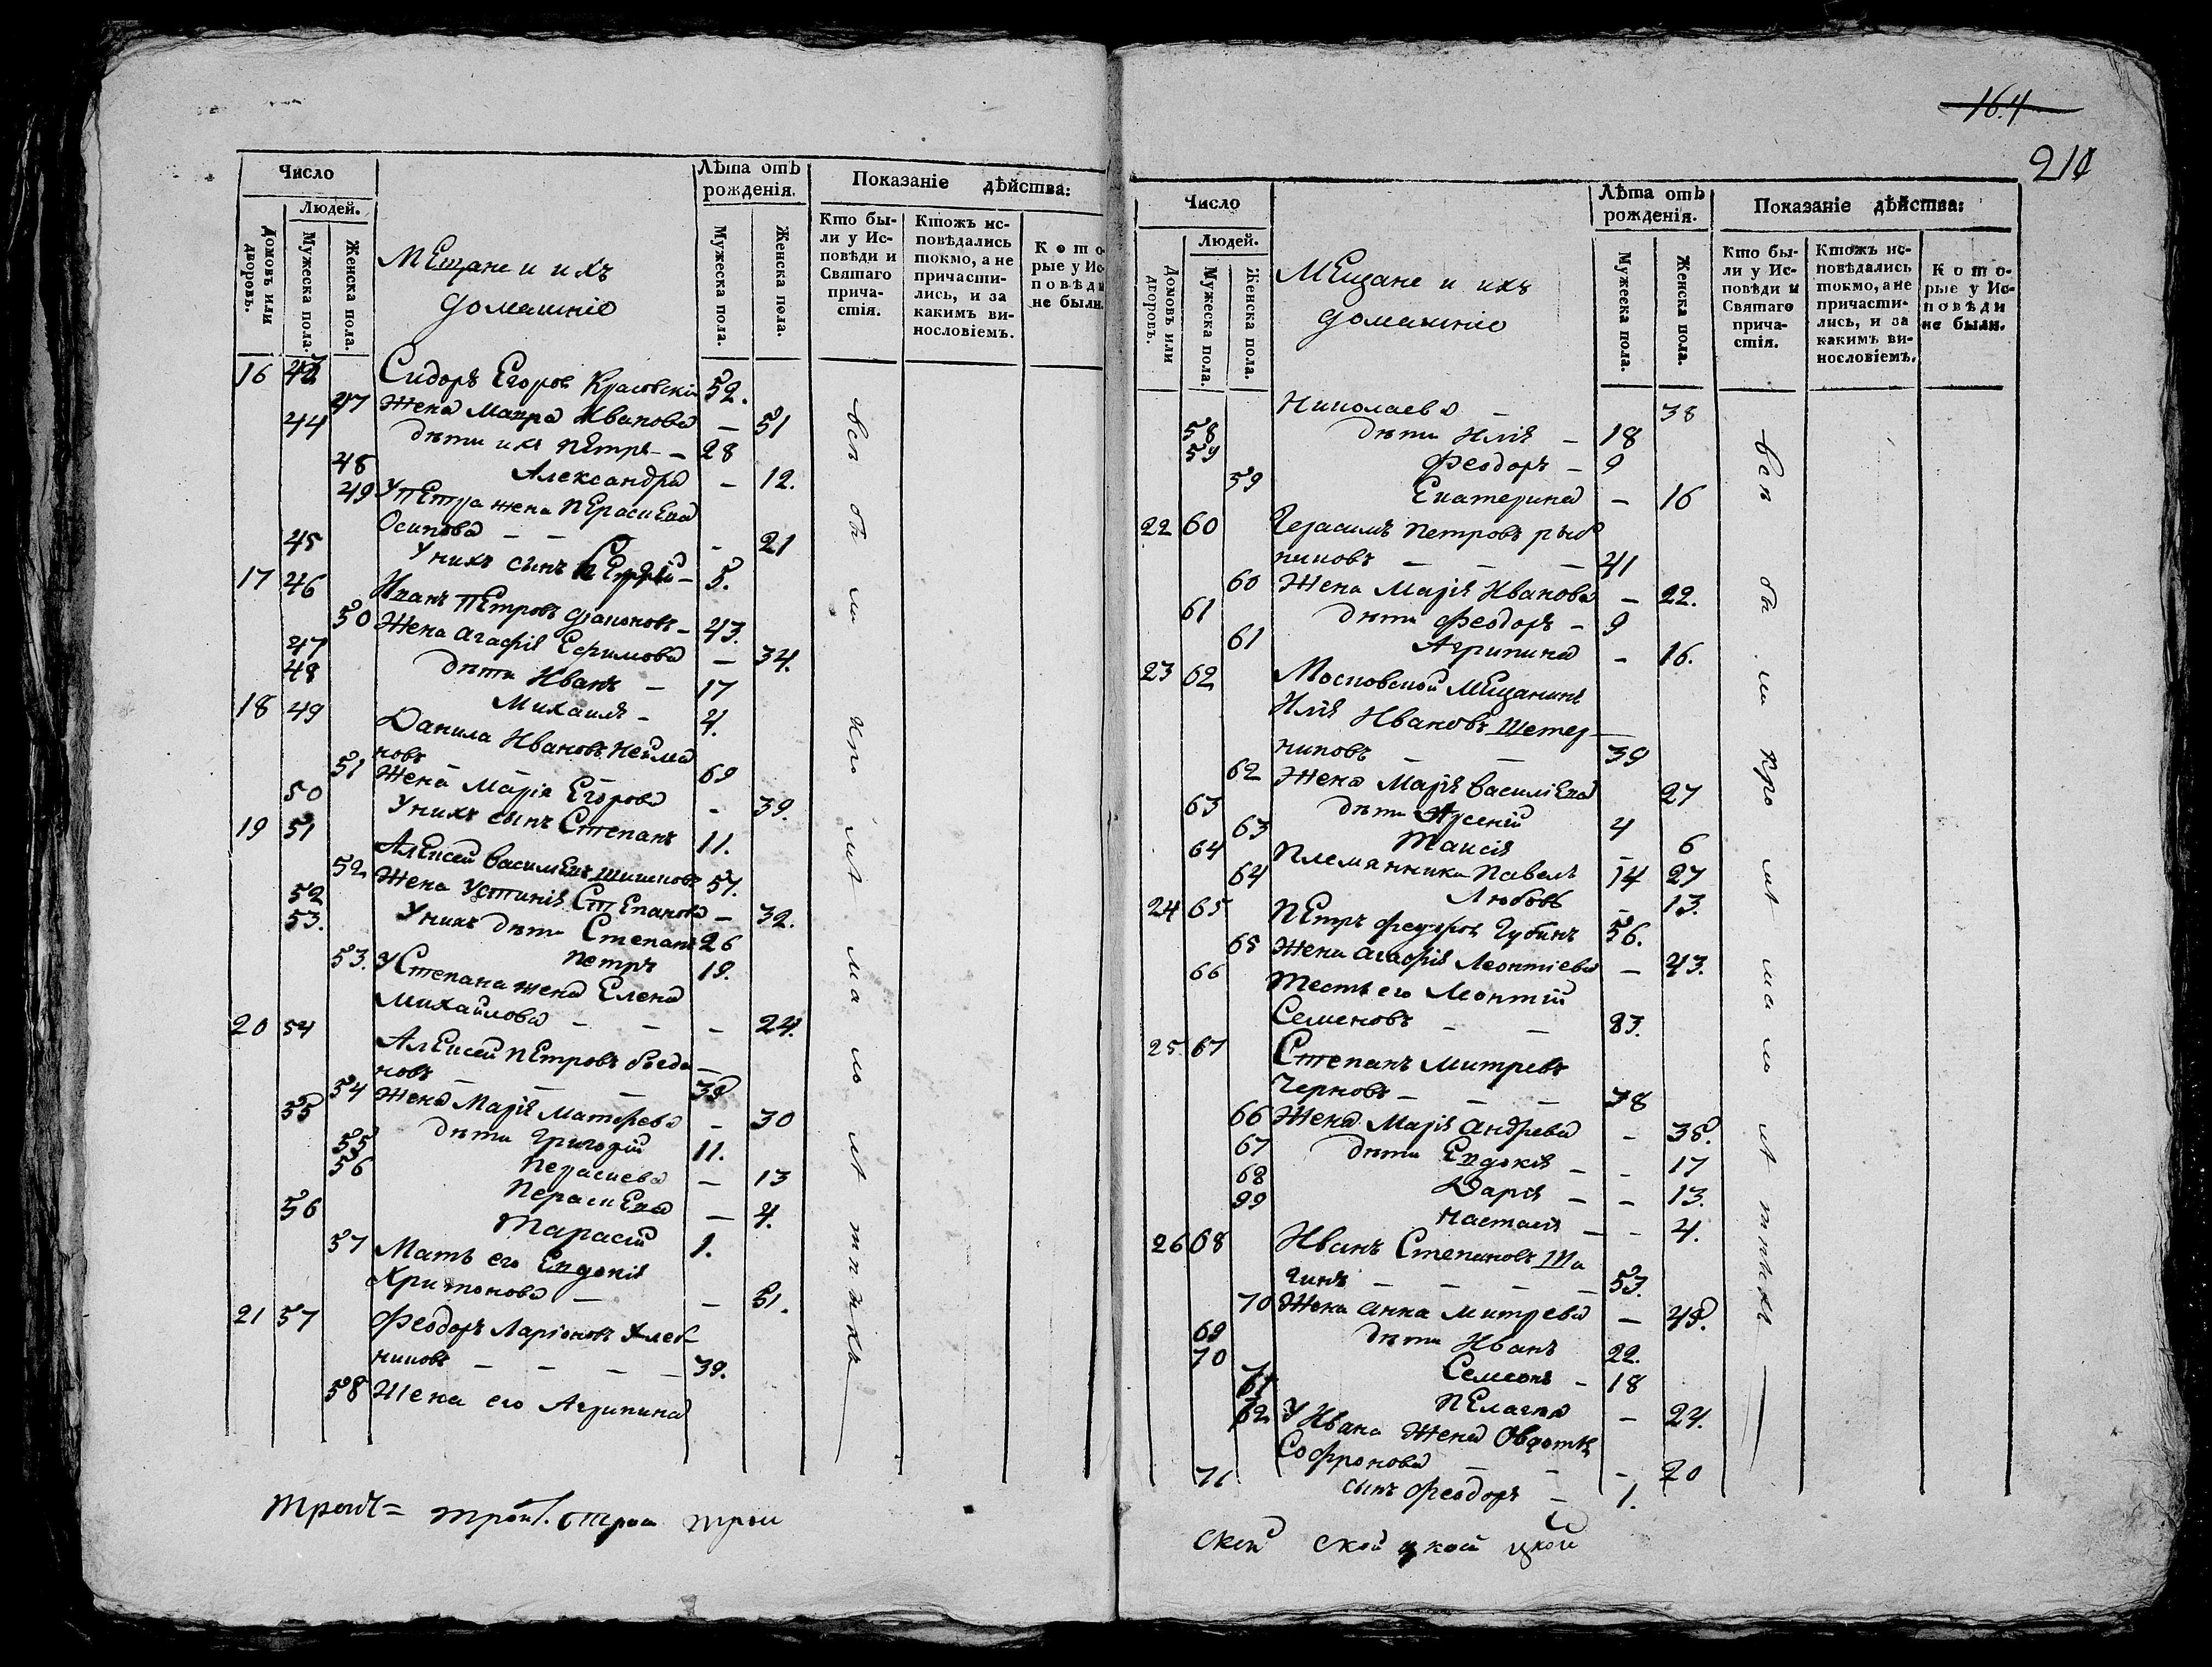 164
210
Число
Людей.
Домовъ или дворовъ.
Мужеска пола.
Женска пола.
Мещане и ихъ
домашніе
Лѣта отъ рожденія.
Мужеска пола.
Женска пола.
Показаніе дѣйства:
Кто были у Исповѣди и Святаго причастія.
Ктожъ исповѣдались токмо, а не причастились, и за какимъ винословіемъ.
Которые у Исповѣди не были.
16 43 Сидоръ Егоров Красовскій 52.
47 Жена Мавра Иванова — 51
44 дѣти ихъ Петръ — 28
48 Александра — 12.
49 У Петра жена Парасиева
Осипова — — - 21
45 У нихъ сынъ 5.
17 46 Иванъ Петровъ — 43.
50 Жена Агафія Ефимова — 34.
47 дѣти Иванъ — 17
48 Михаилъ — 4.
18 49 Данила Ивановъ Нейма
новъ — — — 69
51 Жена Марія Егорова - 39.
50 У нихъ сынъ Степанъ 11.
19 51 Алексей Васильевъ Шишковъ 57.
52 Жена Устинія Степанова — 32.
52 У нихъ дѣти Степанъ 26
53. Петръ 19.
53. У Степана жена Елена
Михайлова — — — 24.
20 54 Алексей Петровъ Богда
новъ — — — 39.
54 Жена Марія Матфеева - 30
55 дѣти Григорій 11.
55 Парасиева — 13
56 Парасиева — 4.
56 Тарасій 1.
57 Мать его Евдокія
Харитонова — — 51.
21 57 Феодоръ Ларіоновъ Хлеб
никовъ — — — — 39.
58 Жена его Агрипина
всѣ бы ли исполнители
Троиц= Трои. Трои трои
Число
Людей.
Домовъ или дворовъ.
Мужеска пола.
Женска пола.
Мещане и ихъ
домашніе
Лѣта отъ рожденія.
Мужеска пола.
Женска пола.
Показаніе дѣйства:
Кто были у Исповѣди и Святаго причастія.
Ктожъ исповѣдались токмо, а не причастились, и за какимъ винословіемъ.
Которые у Исповѣди не были.
Николаева — 38
58 дѣти Илія — 18
59 Феодоръ — 9
59 Екатерина — 16
22 60 Герасимъ Петровъ рыб
никовъ — — — 41
60 Жена Марія Иванова — 22.
61 дѣти Феодоръ — 9
61 Агрипина - 16.
23 62 Московской Мещанинъ
Илія Ивановъ Шетер
никовъ — — 39
62 Жена Марія Василіева 27
63 дѣти Арсеній 4
63 Таисія 6
64 Племянники Павелъ 14 27
64 Любовь - 13.
24 65 Петръ Федоров Губинъ 56.
65 Жена Агафія Леонтіева — 43.
66 Тесть его Леонтій
Семеновъ — — 83.
25. 67 Степанъ Митревъ
Черновъ — — — 38
66 Жена Марія Андрева - 38.
67 дѣти Евдокія — - 17
68 Дарія — - 13.
99 Настасія — - 4.
26 68 Иванъ Степановъ Ша
гинъ — — — — 53.
70 Жена Анна Митрева — 49.
69 дѣти Иванъ 22.
70 Семенъ - 18
61 Пелагея — 24.
62 У Ивана Жена Овдотія
Софронова — — - 20
71 сынъ Феодоръ — 1.
ской ской цкой цкой